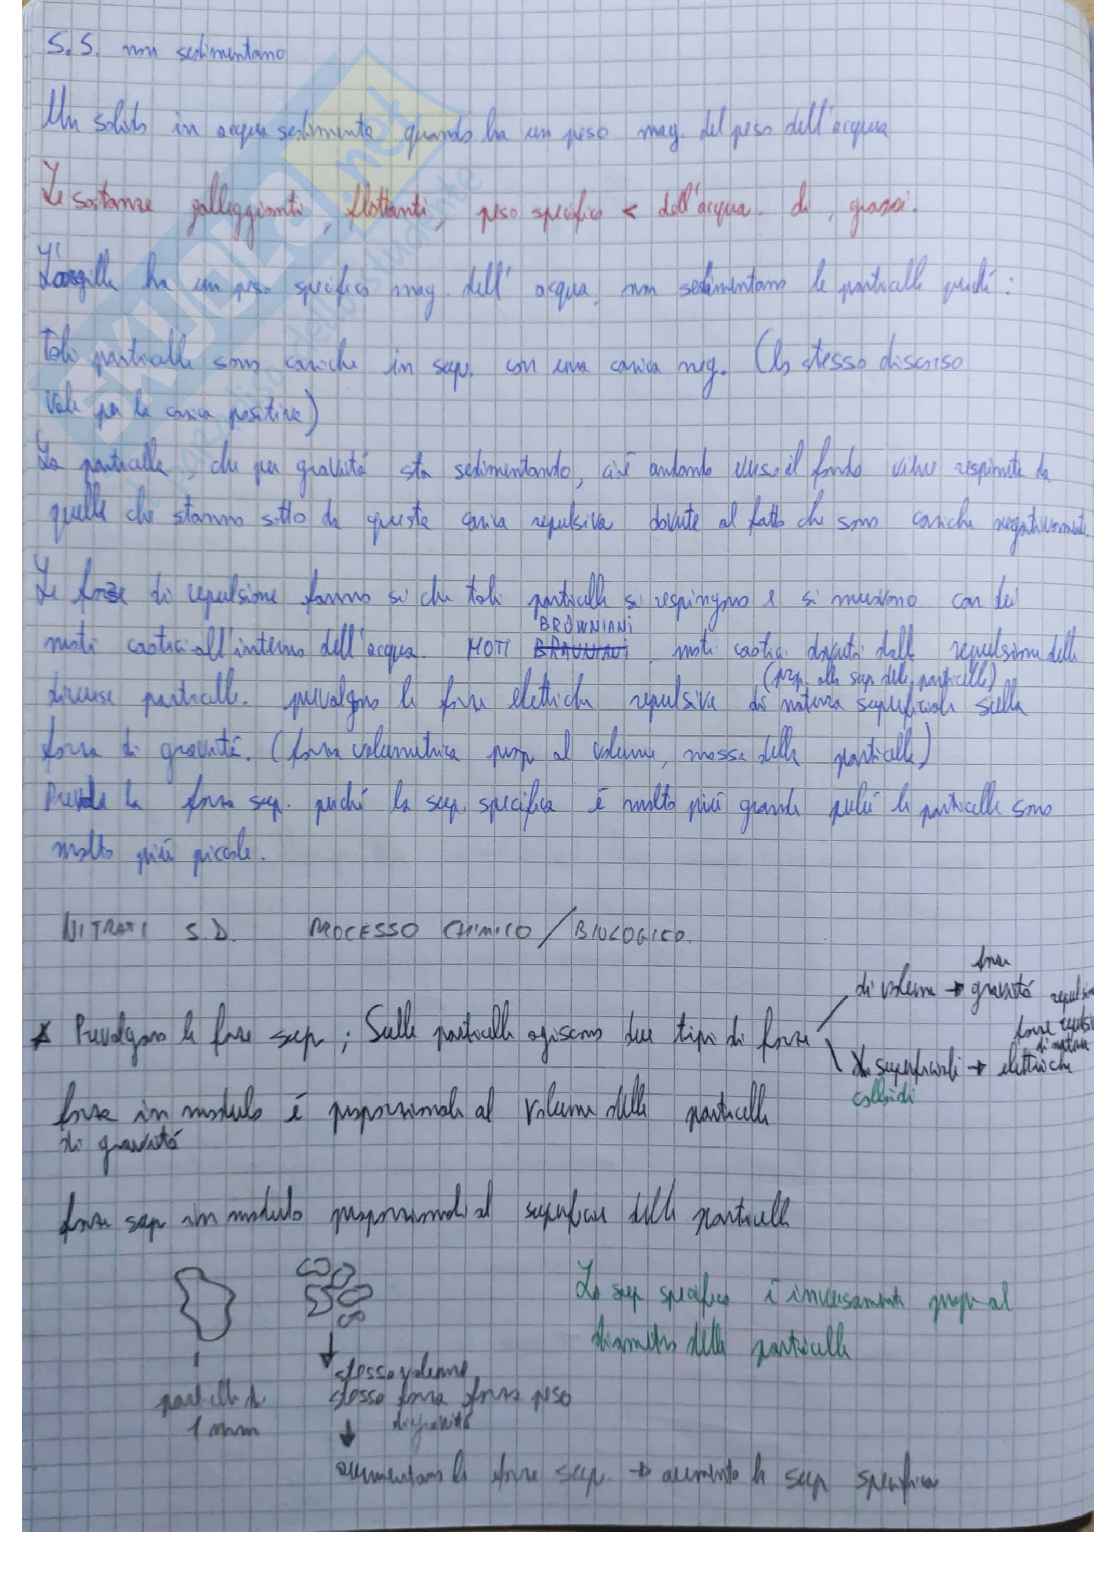 S.S. non sedimentano
Un solido in acqua sedimenta quando ha un peso mag. del peso dell'acqua
Le sostanze galleggianti, flottanti, peso specifico < dell'acqua. di, grassi.
L'argilla ha un peso specifico mag. dell'acqua, non sedimentano le particelle perché:
Tali particelle sono cariche in sup. con una carica neg. (Lo stesso discorso
vale per la carica positiva)
La particella, che per gravità sta sedimentando, cioè andando verso il fondo viene respinta da
quelle che stanno sotto da questa carica repulsiva dovuta al fatto che sono cariche negativamente.
Le forze di repulsione fanno sì che tali particelle si respingono e si muovono con dei
moti caotici all'interno dell'acqua. MOTI BROWNIANI, moti caotici dovuti dalla repulsione delle
(prop. alla sup. delle particelle)
diverse particelle. prevalgono le forze elettriche repulsive di natura superficiale sulla
forza di gravità. (forza volumetrica prop al volume, massa della particelle)
Prevale la forza sup. perché la sup. specifica è molto più grande poiché le particelle sono
molto più piccole.
NITRATI S.D. PROCESSO CHIMICO/BIOLOGICO.
di volume → forze gravità
Prevalgono le forze sup; Sulle particelle agiscono due tipi di forze
superficiali → forze repulsive di natura elettriche
colloidi
forza in modulo è proporzionale al volume delle particelle
di gravità
forze sup in modulo proporzionali al superficie delle particelle
La sup specifica è inversamente prop al
diametro delle particelle
stesso volume
particella da stessa forza forza peso
1 mm di gravità
aumentano le forze sup. → aumenta la sup specifica